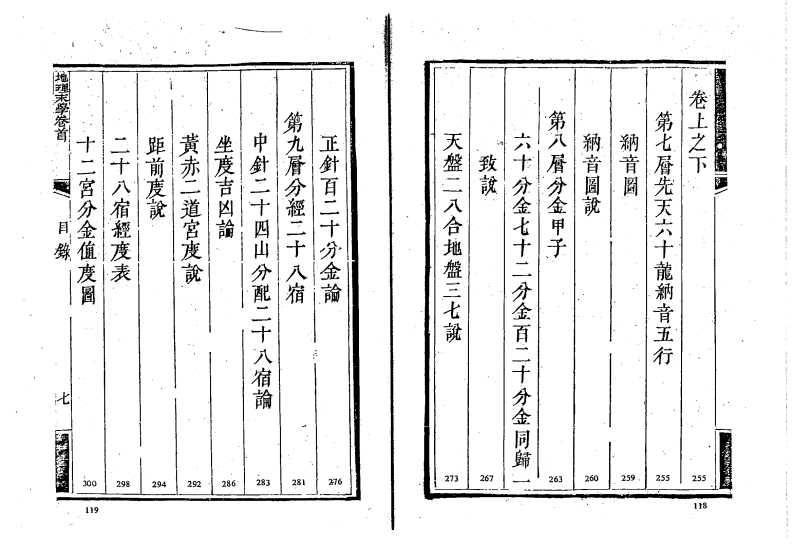 卷上之下 255
第七層先天六十龍納音五行 255
納音圖 259
納音圖說 260
第八層分金甲子 263
六十分金七十二分金百二十分金同歸一
致說 267
天盤二八合地盤三七說 273
118
正針百二十分金論 276
第九層分經二十八宿 281
中針二十四山分配二十八宿論 283
坐度吉凶論 286
黃赤二道宮度說 292
距前度說 294
二十八宿經度表 298
十二宮分金值度圖 300
地理末學卷首
目錄
七
119